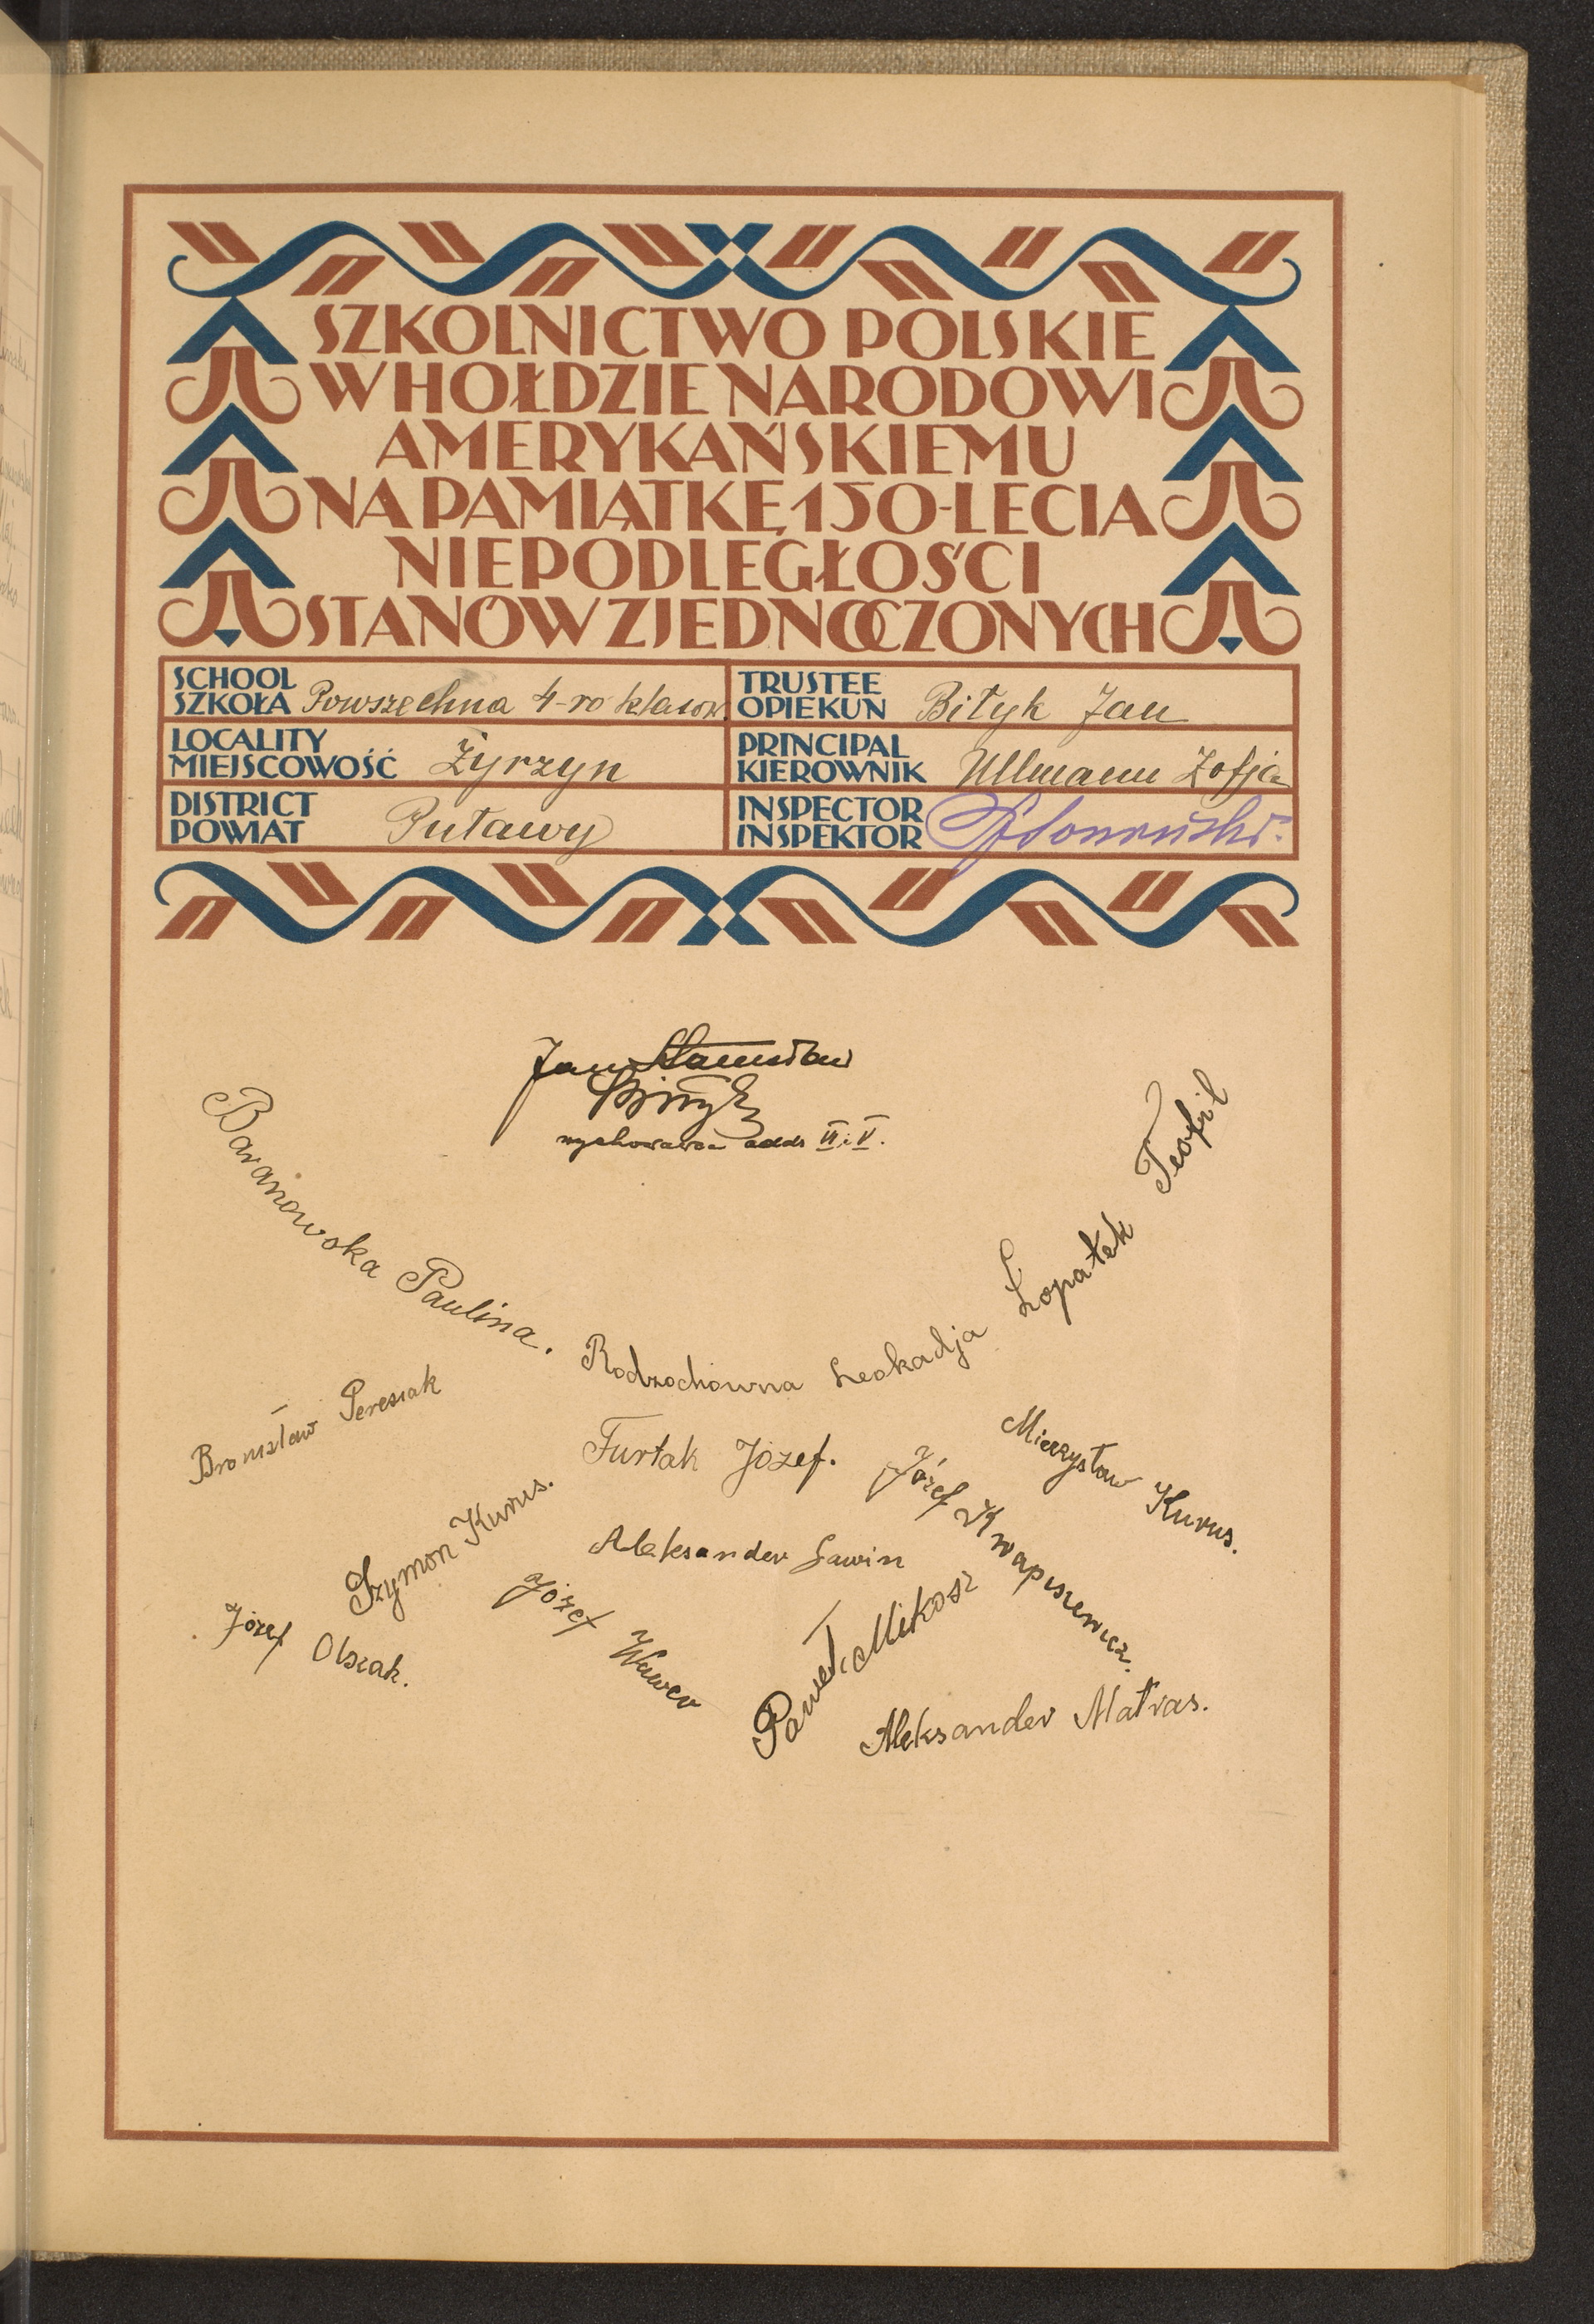 SZKOLNICTWO POLSKIE
W HOŁDZIE NARODOWI
AMERYKAŃSKIEMU
NA PAMIĄTKĘ 150-LECIA
NIEPODLEGŁOŚCI
STANÓW ZJEDNOCZONYCH
SCHOOL
SZKOŁA Powszechna 4-ro klasow.
TRUSTEE
OPIEKUN Bityk Jan
LOCALITY
MIEJSCOWOŚĆ Żyrzyn
PRINCIPAL
KIEROWNIK Ullmann Zofja
DISTRICT
POWIAT Puławy
INSPECTOR
INSPEKTOR
Jan Stanisław
Bityk
wychowawca oddz VI i V.
Baranowska Paulina.
Rodzochówna Leokadja
Łopatek Teofil
Bronisław Peresiak
Furtak Józef.
Mieczysław Kurus.
Szymon Kurus.
Józef Kwapiszewicz.
Aleksander Gawin
Józef Olszak.
Józef Wawer
Paweł Mikosz
Aleksander Matras.